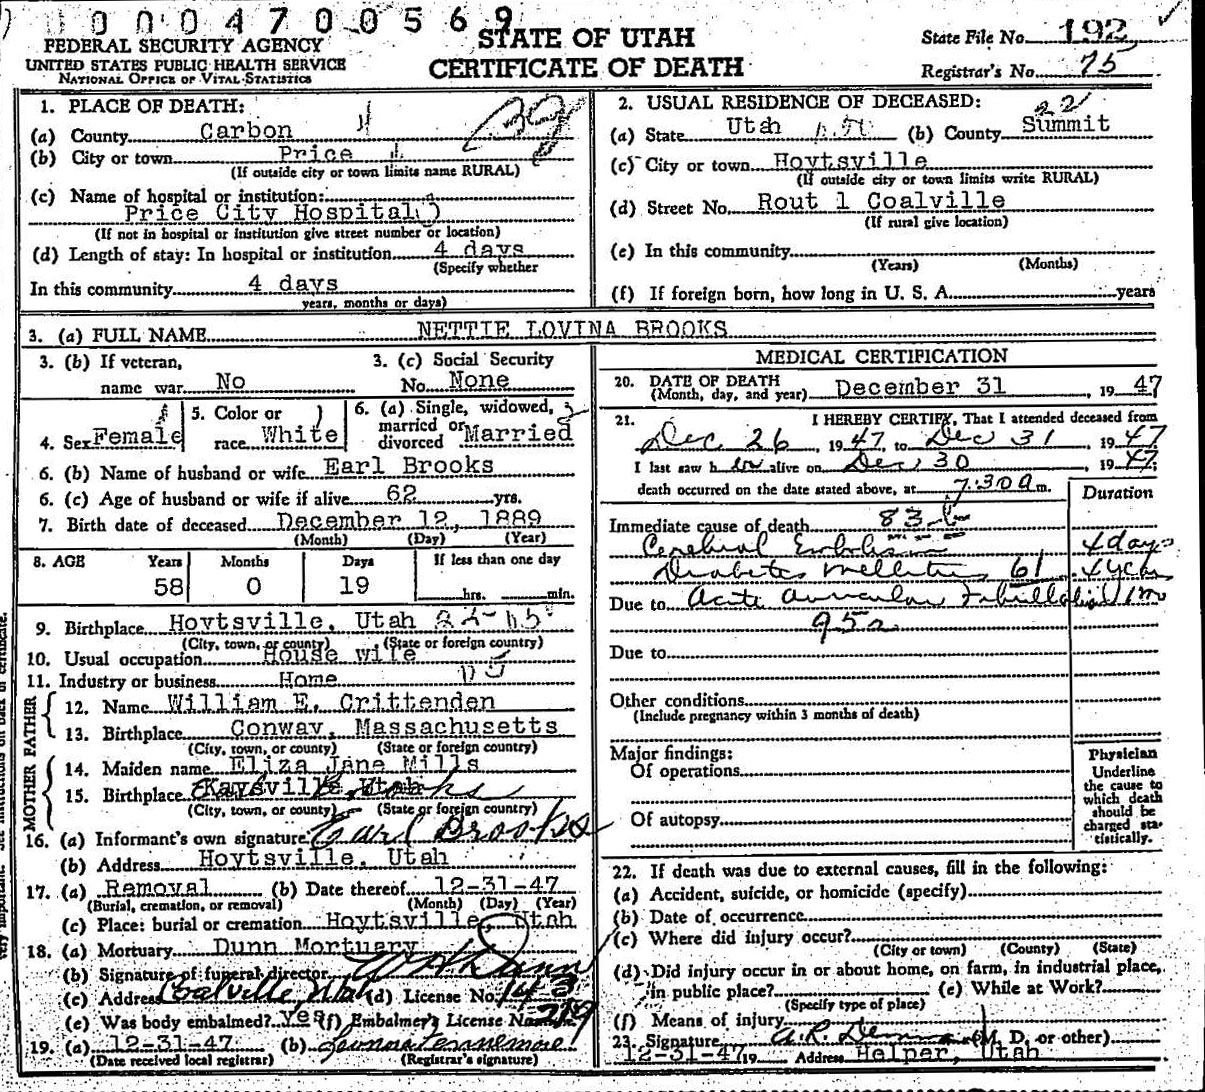 0004700569
FEDERAL SECURITY AGENCY
UNITED STATES PUBLIC HEALTH SERVICE
NATIONAL OFFICE OF VITAL STATISTICS
STATE OF UTAH
CERTIFICATE OF DEATH
State File No. 192
Registrar's No. 75
1. PLACE OF DEATH:
(a) County Carbon
(b) City or town Price
(If outside city or town limits name RURAL)
(c) Name of hospital or institution:
Price City Hospital
(If not in hospital or institution give street number or location)
(d) Length of stay: In hospital or institution 4 days
(Specify whether
In this community 4 days
years, months or days)
2. USUAL RESIDENCE OF DECEASED:
22
(a) State Utah (b) County Summit
(c) City or town Hoytsville
(If outside city or town limits write RURAL)
(d) Street No. Rout 1 Coalville
(If rural give location)
(e) In this community
(Years) (Months)
(f) If foreign born, how long in U. S. A. years
3. (a) FULL NAME NETTIE LOVINA BROOKS
3. (b) If veteran,
name war No
3. (c) Social Security
No. None
4. Sex Female
5. Color or
race White
6. (a) Single, widowed,
married or
divorced Married
6. (b) Name of husband or wife Earl Brooks
6. (c) Age of husband or wife if alive 62 yrs.
7. Birth date of deceased December 12, 1889
(Month) (Day) (Year)
8. AGE Years Months Days If less than one day
58 0 19 hrs. min.
9. Birthplace Hoytsville, Utah
(City, town, or county) (State or foreign country)
10. Usual occupation House wife
11. Industry or business Home
FATHER
12. Name William E. Crittenden
13. Birthplace Conway, Massachusetts
(City, town, or county) (State or foreign country)
MOTHER
14. Maiden name Eliza Jane Mills
15. Birthplace Kaysville, Utah
(City, town, or county) (State or foreign country)
16. (a) Informant's own signature Earl Brooks
(b) Address Hoytsville, Utah
17. (a) Removal (b) Date thereof 12-31-47
(Burial, cremation, or removal) (Month) (Day) (Year)
(c) Place: burial or cremation Hoytsville, Utah
18. (a) Mortuary Dunn Mortuary
(b) Signature of funeral director Dunn
(c) Address Coalville, Utah (d) License No. 143
(e) Was body embalmed? Yes (f) Embalmer's License No. 219
19. (a) 12-31-47 (b)
(Date received local registrar) (Registrar's signature)
MEDICAL CERTIFICATION
20. DATE OF DEATH
(Month, day, and year) December 31, 1947
21. I HEREBY CERTIFY, That I attended deceased from
Dec 26, 1947, to Dec 31, 1947
I last saw her alive on Dec 30, 1947;
death occurred on the date stated above, at 7:30 a m.
Duration
Immediate cause of death 83-b
Cerebral Embolism 4 days
Diabetes mellitus 61
Due to Acute auricular fibrillation
95a
Due to
Other conditions
(Include pregnancy within 3 months of death)
Major findings:
Of operations
Of autopsy
Physician
Underline
the cause to
which death
should be
charged sta-
tistically.
22. If death was due to external causes, fill in the following:
(a) Accident, suicide, or homicide (specify)
(b) Date of occurrence
(c) Where did injury occur?
(City or town) (County) (State)
(d) Did injury occur in or about home, on farm, in industrial place,
in public place? (e) While at Work?
(Specify type of place)
(f) Means of injury
23. Signature (M. D. or other)
12-31-47 19 Address Helper, Utah